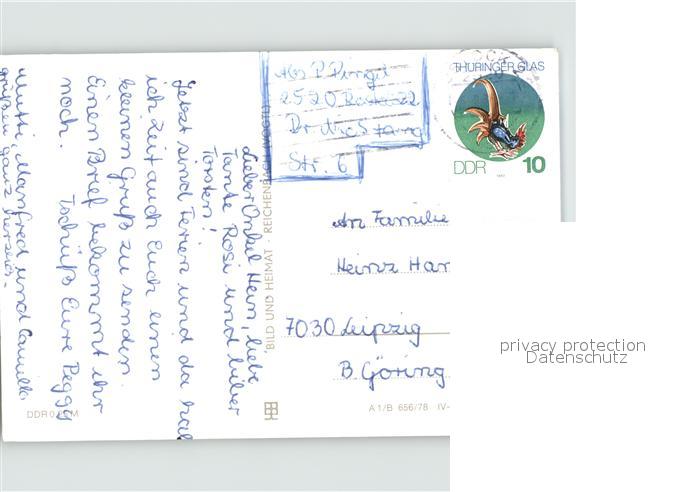 Lieber Onkel Hein, liebe
Tante Rosi und lieber
Torsten!
Jetzt sind Ferien und da hab
ich Zeit auch Euch einen
kleinen Gruß zu senden.
Einen Brief bekommt ihr
noch. Tschüß Eure Peggy
Mutti, Manfred und Camilla
grüßen ganz herzlich.
BILD UND HEIMAT · REICHENBACH
Abs P.
2520 Rostock 22
Str. 6
THÜRINGER GLAS
DDR 10
An Familie
Heinz Har
7030 Leipzig
B. Göring
A 1/B 656/78 IV-
privacy protection
Datenschutz